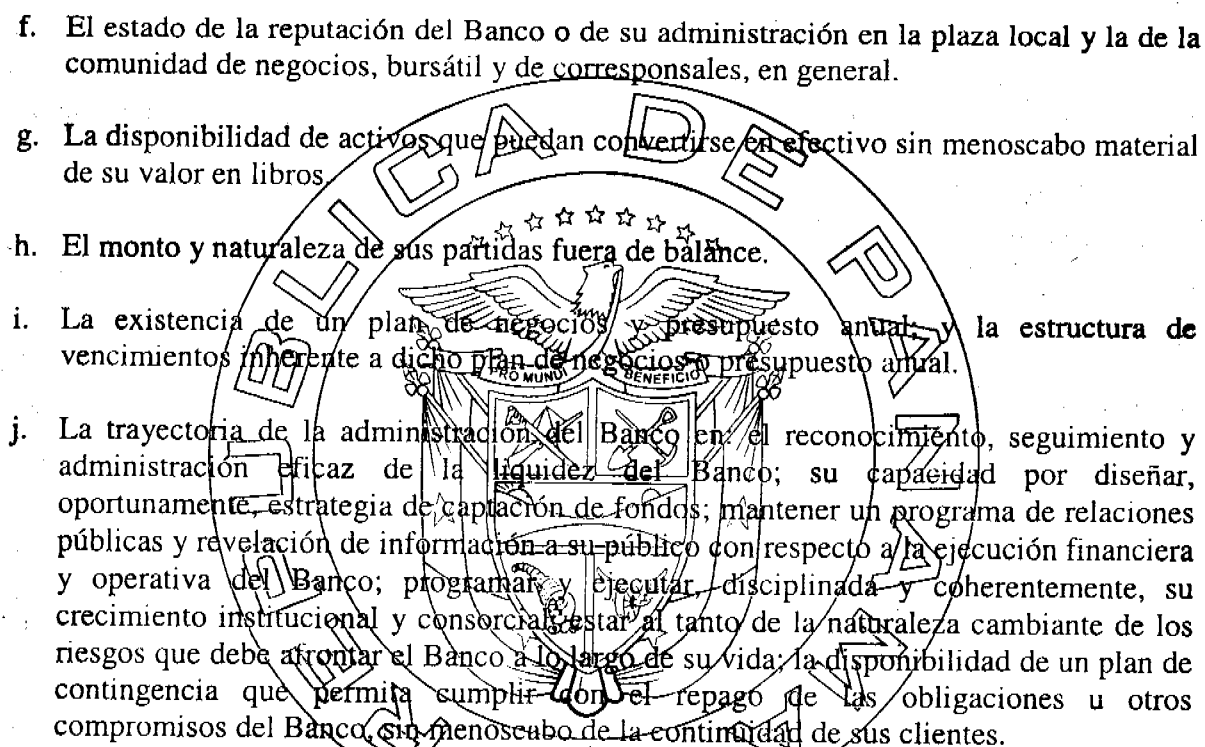 f. El estado de la reputación del Banco o de su administración en la plaza local y la de la
comunidad de negocios, bursátil y de corresponsales, en general.
g. La disponibilidad de activos que puedan convertirse en efectivo sin menoscabo material
de su valor en libros.
h. El monto y naturaleza de sus partidas fuera de balance.
i. La existencia de un plan de negocios y presupuesto anual; y la estructura de
vencimientos inherente a dicho plan de negocios o presupuesto anual.
PRO MUNDI BENEFICIO
j. La trayectoria de la administración del Banco en: el reconocimiento, seguimiento y
administración eficaz de la liquidez del Banco; su capacidad por diseñar,
oportunamente, estrategia de captación de fondos; mantener un programa de relaciones
públicas y revelación de información a su público con respecto a la ejecución financiera
y operativa del Banco; programar y ejecutar, disciplinada y coherentemente, su
crecimiento institucional y consorcial; estar al tanto de la naturaleza cambiante de los
riesgos que debe afrontar el Banco a lo largo de su vida; la disponibilidad de un plan de
contingencia que permita cumplir con el repago de las obligaciones u otros
compromisos del Banco, sin menoscabo de la continuidad de sus clientes.
REPUBLICA DE PANAMA